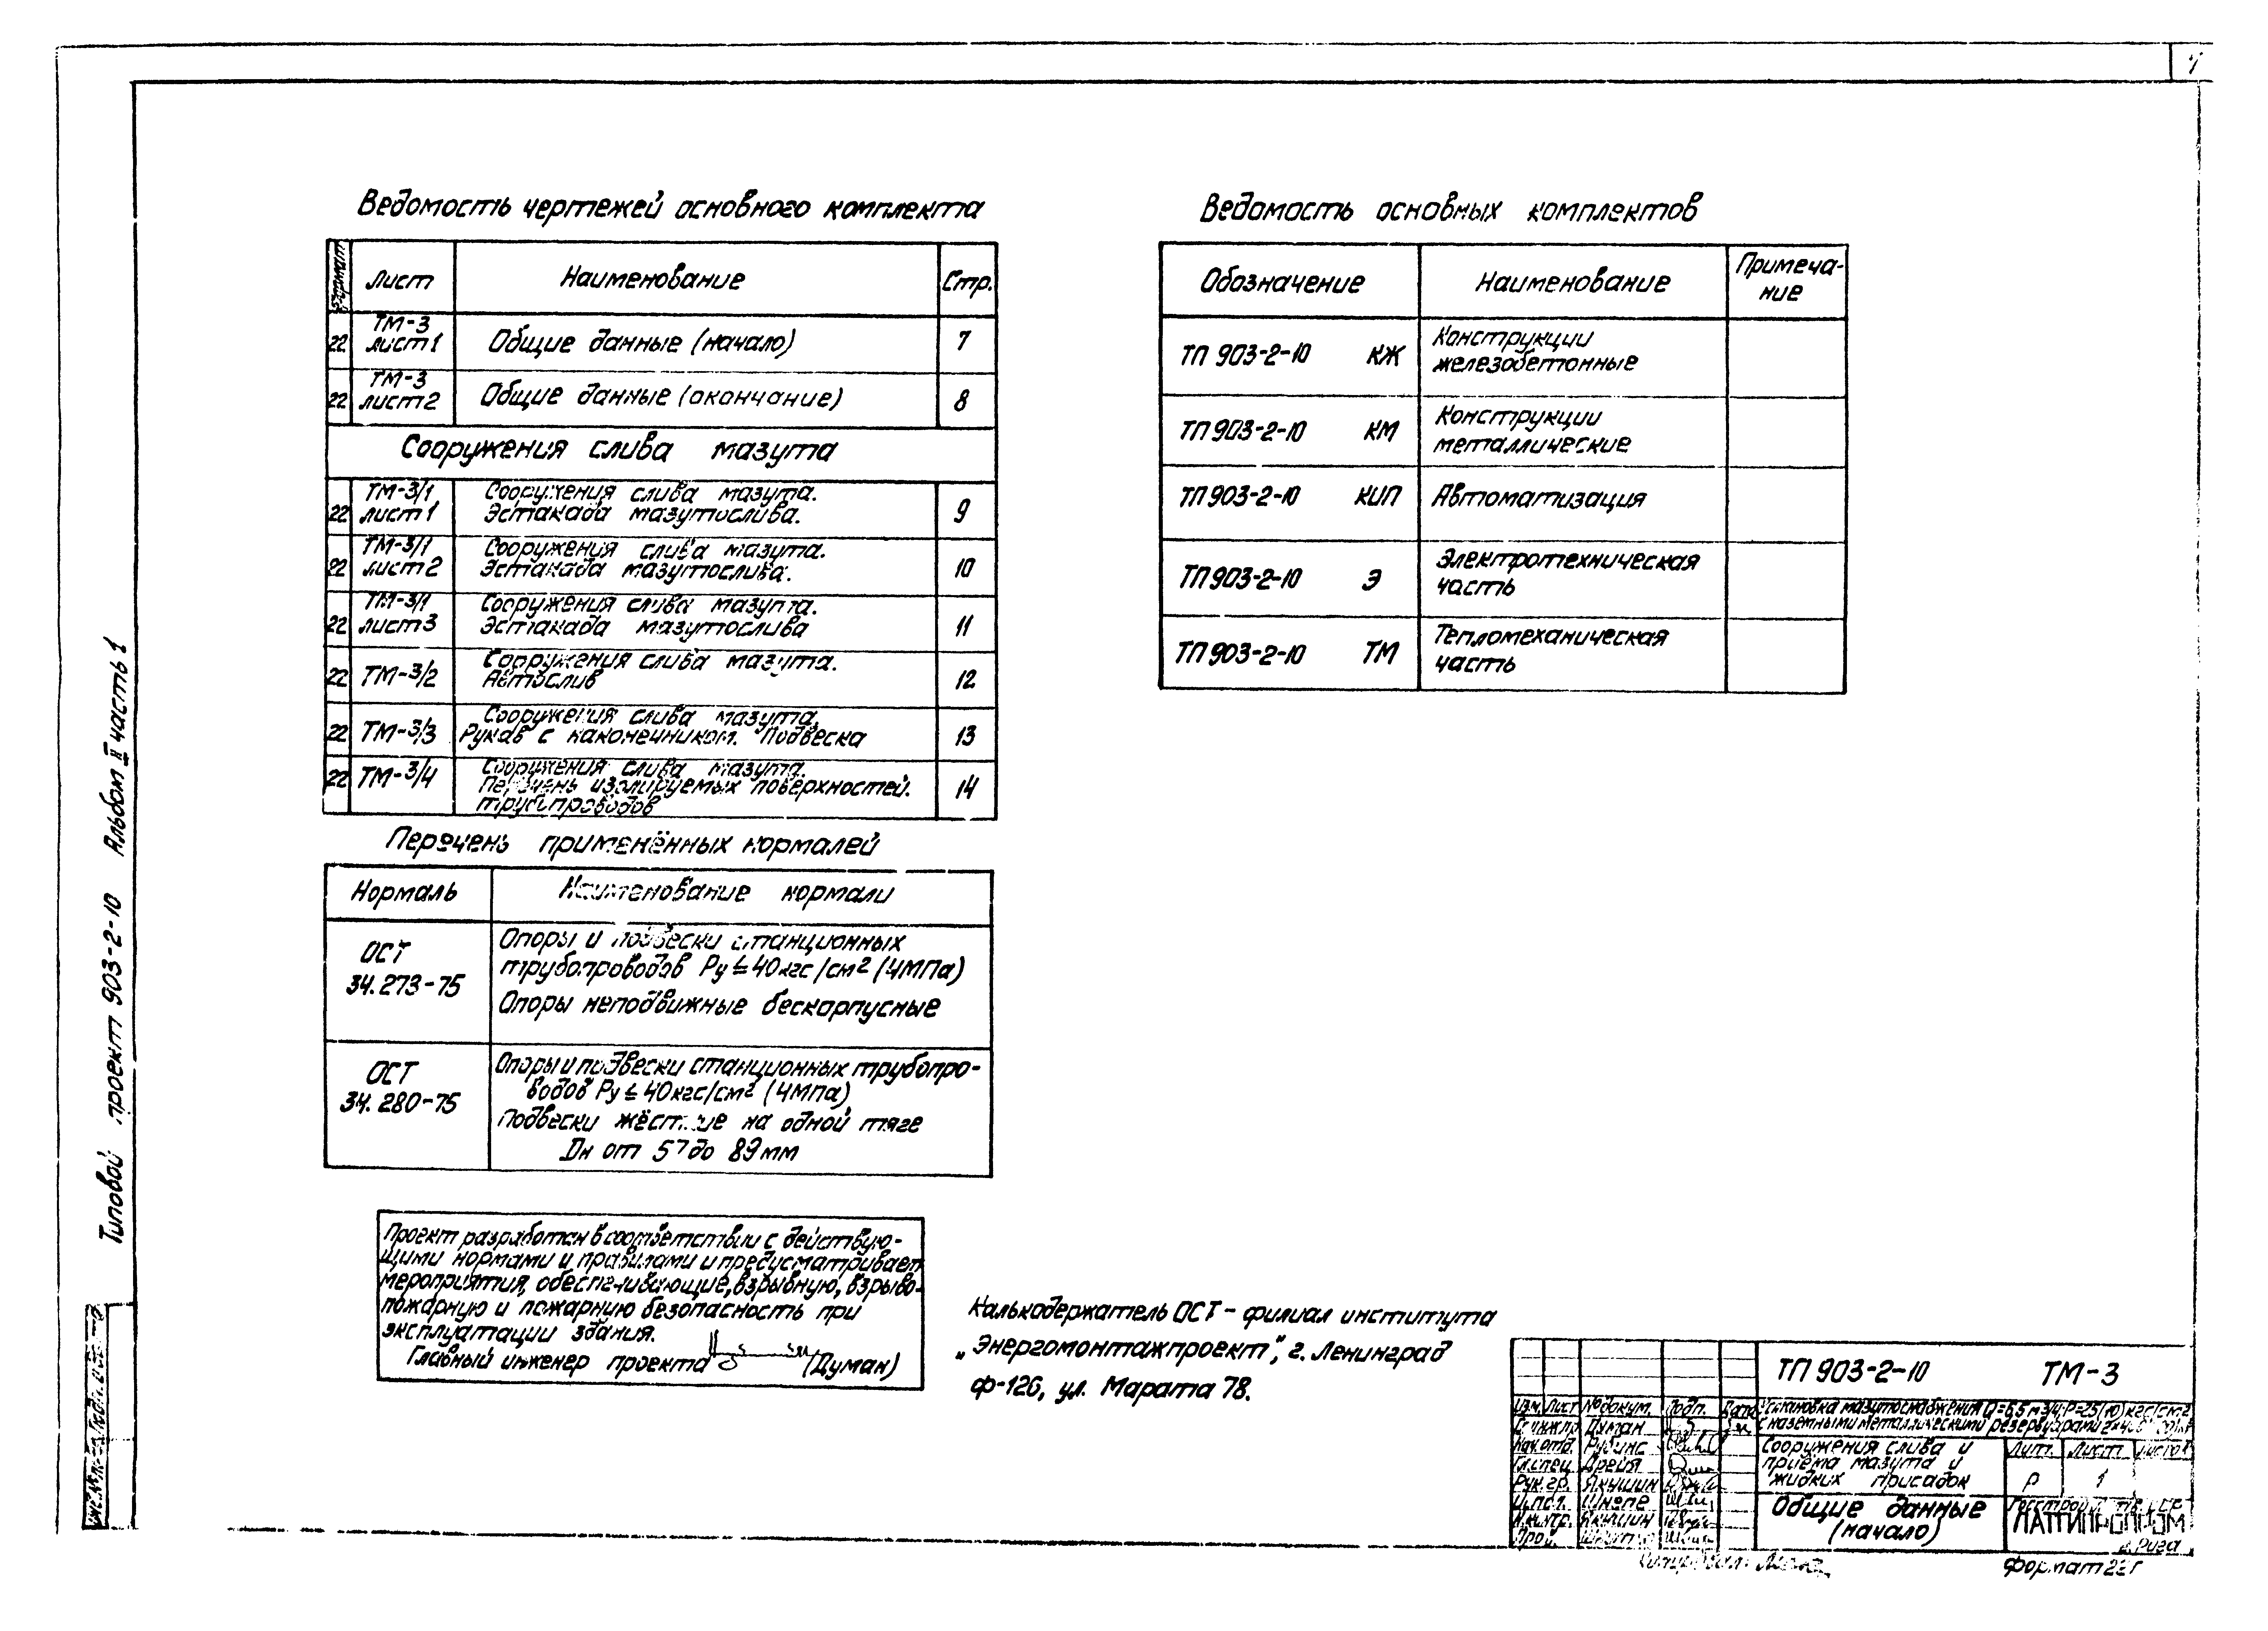 7
Ведомость чертежей основного комплекта
Формат Лист Наименование Стр.
22 ТМ-3 лист 1 Общие данные (начало) 7
22 ТМ-3 лист 2 Общие данные (окончание) 8
Сооружения слива мазута
22 ТМ-3/1 лист 1 Сооружения слива мазута. Эстакада мазутослива. 9
22 ТМ-3/1 лист 2 Сооружения слива мазута. Эстакада мазутослива. 10
22 ТМ-3/1 лист 3 Сооружения слива мазута. Эстакада мазутослива 11
22 ТМ-3/2 Сооружения слива мазута. Автослив 12
22 ТМ-3/3 Сооружения слива мазута. Рукав с наконечником. Подвеска 13
22 ТМ-3/4 Сооружения слива мазута. Перечень изолируемых поверхностей. трубопроводов 14
Перечень применённых нормалей
Нормаль Наименование нормали
ОСТ 34.273-75
Опоры и подвески станционных
трубопроводов Ру≤40кгс/см² (4МПа)
Опоры неподвижные бескорпусные
ОСТ 34.280-75
Опоры и подвески станционных трубопро-
водов Ру≤40кгс/см² (4МПа)
Подвески жёсткие на одной тяге
Dн от 57 до 89мм
Проект разработан в соответствии с действую-
щими нормами и правилами и предусматривает
мероприятия, обеспечивающие, взрывную, взрыво-
пожарную и пожарную безопасность при
эксплуатации здания.
Главный инженер проекта (Думан)
Ведомость основных комплектов
Обозначение Наименование Примеча-
ние
ТП 903-2-10 КЖ Конструкции железобетонные
ТП 903-2-10 КМ Конструкции металлические
ТП 903-2-10 КИП Автоматизация
ТП 903-2-10 Э Электротехническая часть
ТП 903-2-10 ТМ Тепломеханическая часть
Калькодержатель ОСТ - филиал института
„Энергомонтажпроект", г. Ленинград
Ф-126, ул. Марата 78.
Типовой проект 903-2-10 Альбом II часть 1
ТП 903-2-10 ТМ-3
Изм. Лист №докум. Подп. Дата
Установка мазутоснабжения Q=6,5 м3/ч; Р=25(10) кгс/см2
с наземными металлическими резервуарами
Гл.инж.пр Думан
Нач.отд. Рубинс
Гл.спец. Дрейя
Рук.гр. Якушин
Исполн. Шнепе
Н.контр. Якушин
Пров.
Сооружения слива и
приёма мазута и
жидких присадок
Лит. Лист Листов
Р 1
Общие данные
(начало)
ЛАТГИПРОПРОМ
г. Рига
Копировал:
Формат 22Г